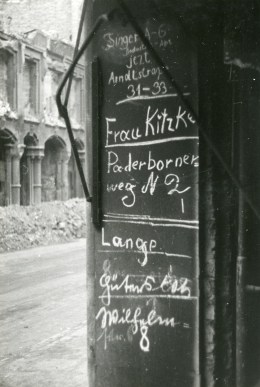 Singer A-G
jetzt
Arndtstraße
31-33
Frau Kitzka
Paderborner-
weg N 2
Lange
Gütersloh
Wilhelm-
8